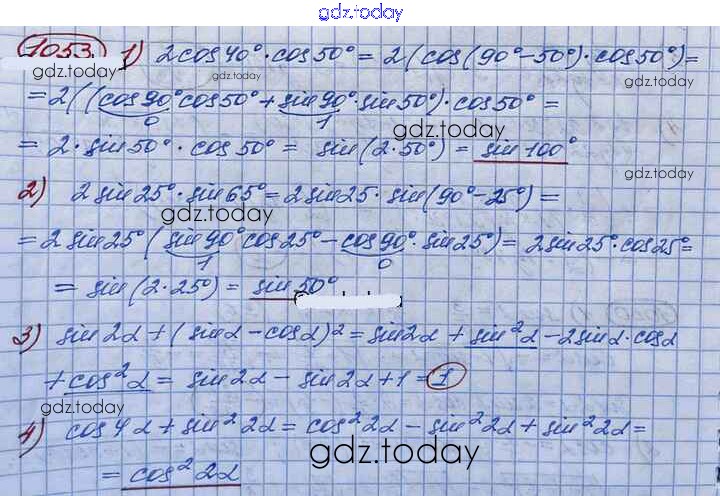 gdz.today
1053. 1) 2cos40°·cos50° = 2(cos(90°−50°)·cos50°) =
gdz.today gdz.today
= 2((cos90°cos50° + sin90°·sin50°)·cos50° =
0 1
gdz.today
= 2·sin50°·cos50° = sin(2·50°) = sin100°
gdz.today
2) 2sin25°·sin65° = 2sin25·sin(90°−25°) =
gdz.today
= 2sin25°(sin90°cos25° − cos90°·sin25°) = 2sin25°·cos25° =
1 0
= sin(2·25°) = sin50°
3) sin2α + (sinα − cosα)² = sin2α + sin²α − 2sinα·cosα
+ cos²α = sin2α − sin2α + 1 = 1
gdz.today
4) cos4α + sin²2α = cos²2α − sin²2α + sin²2α =
gdz.today
= cos²2α